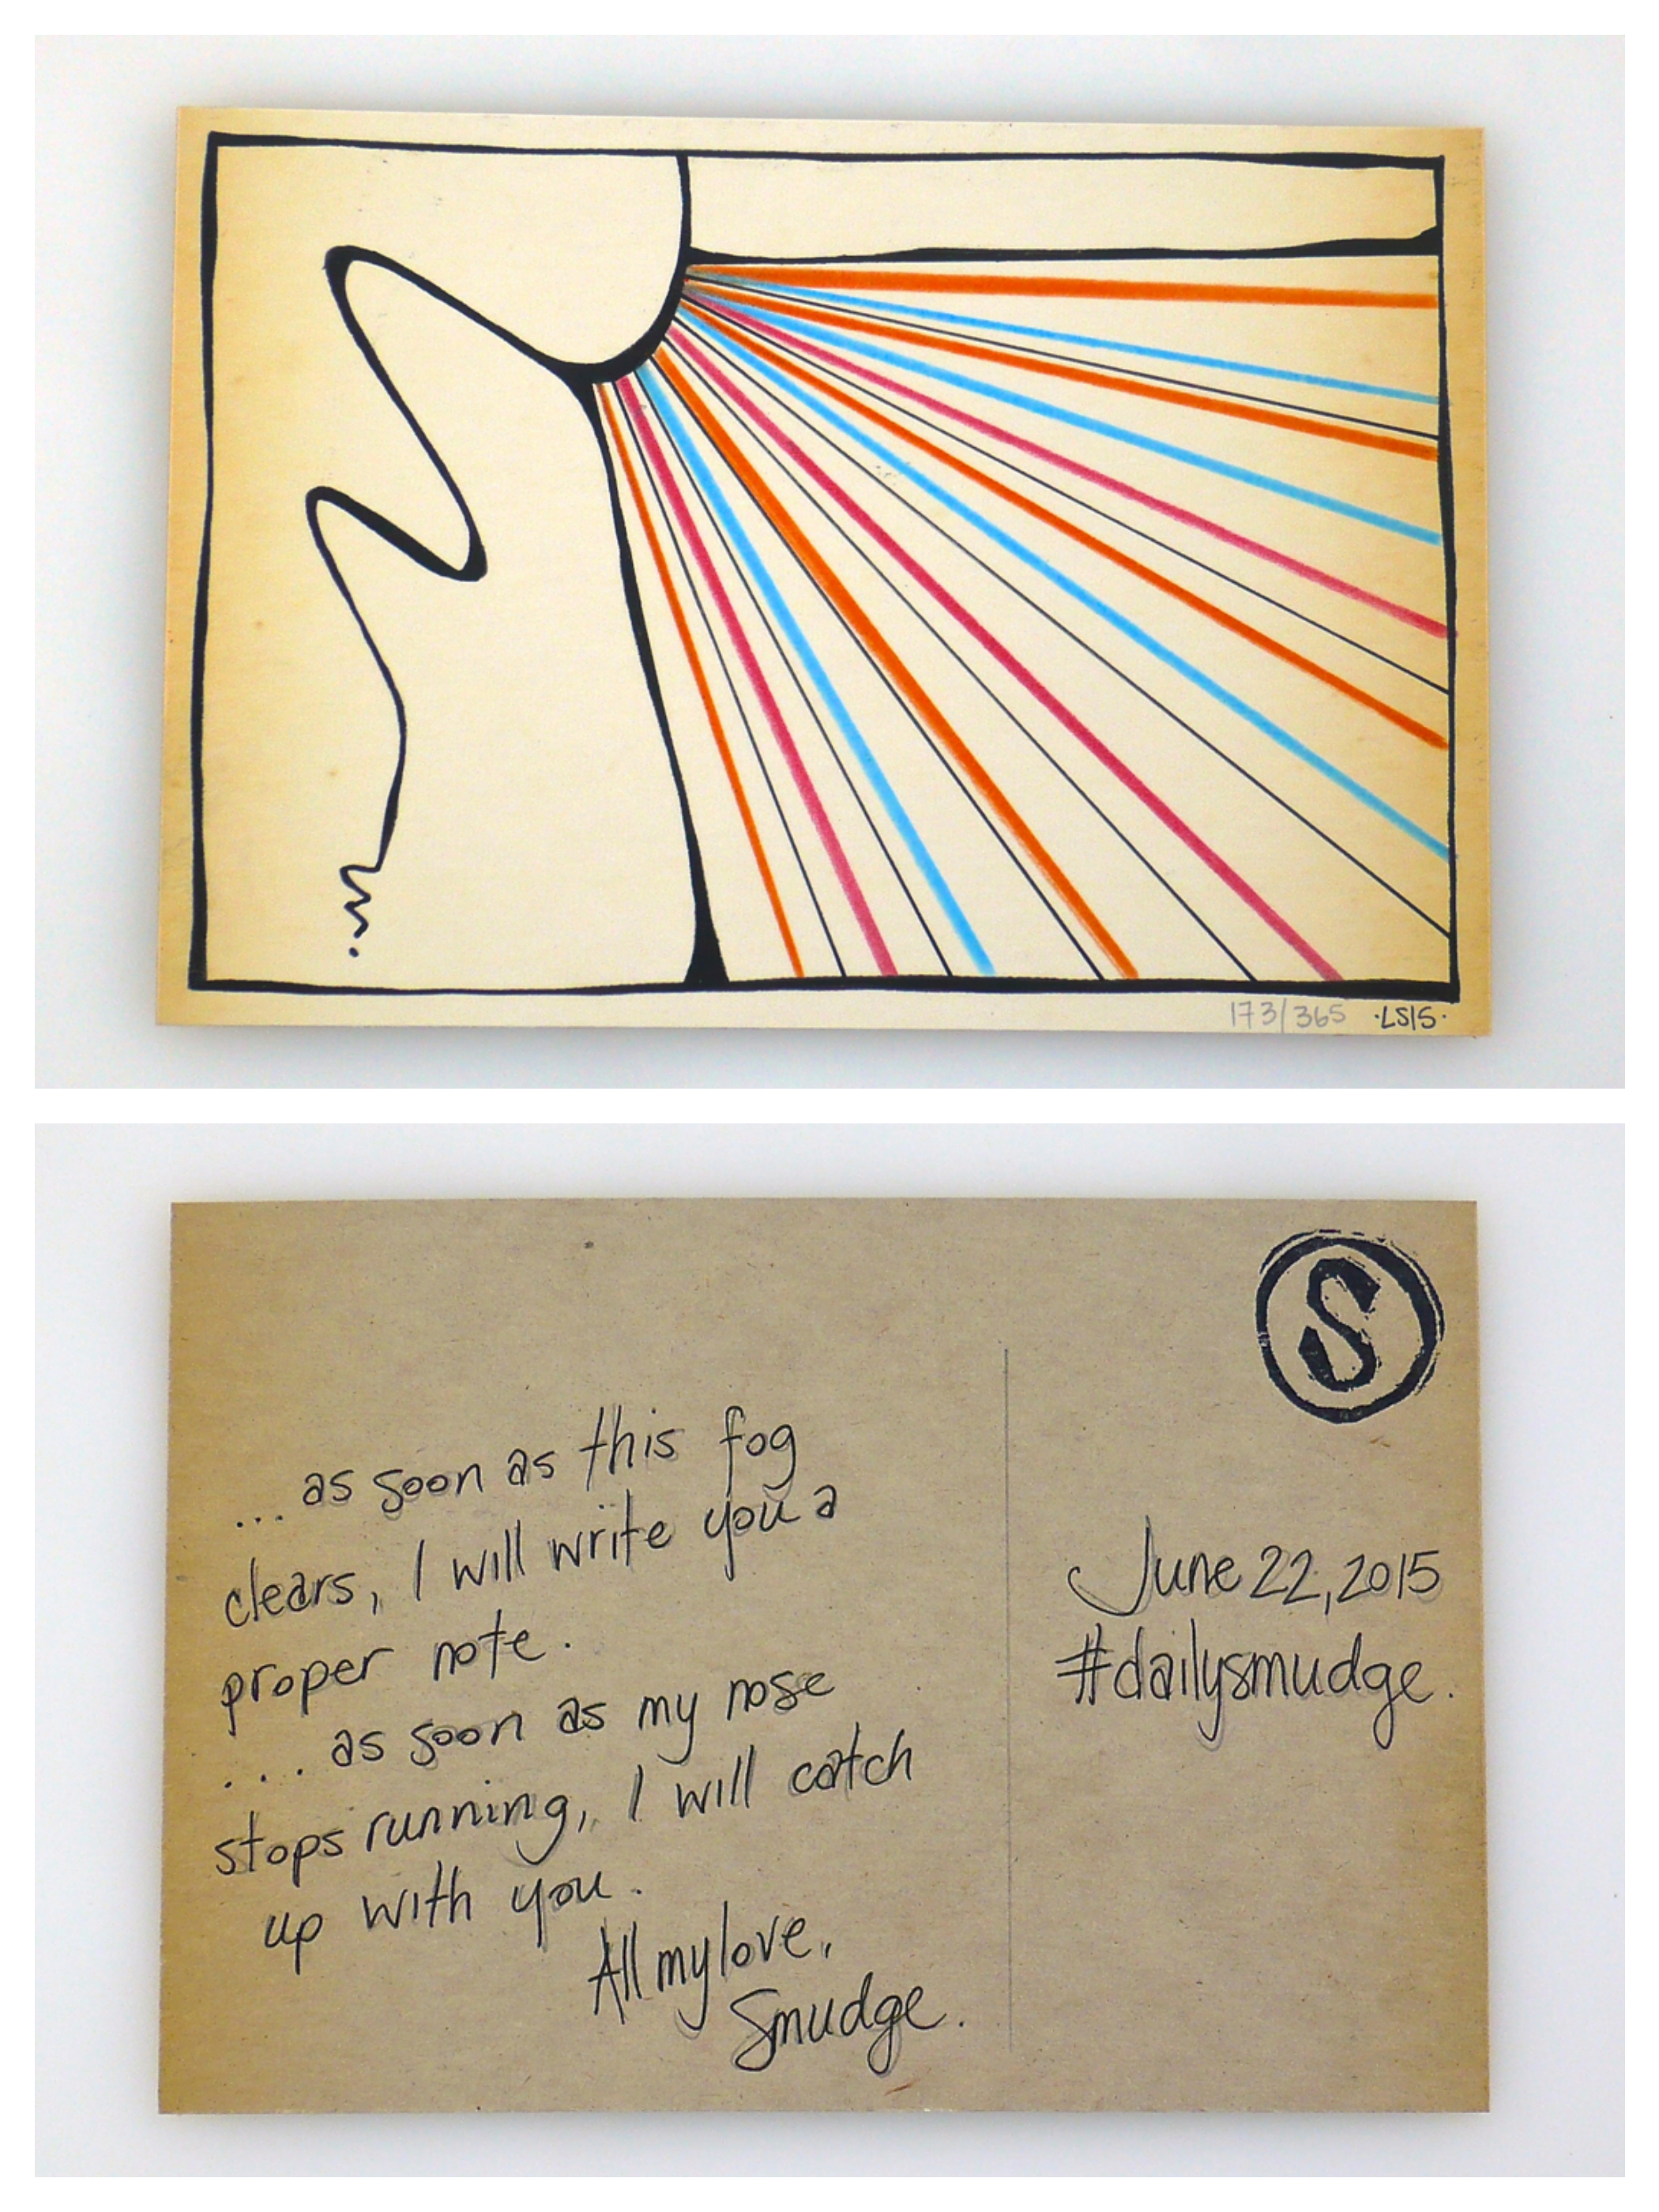 173/365 ·LS15·
S
... as soon as this fog
clears, I will write you a
proper note.
.... as soon as my nose
stops running, I will catch
up with you.
All my love,
Smudge.
June 22, 2015
#dailysmudge.